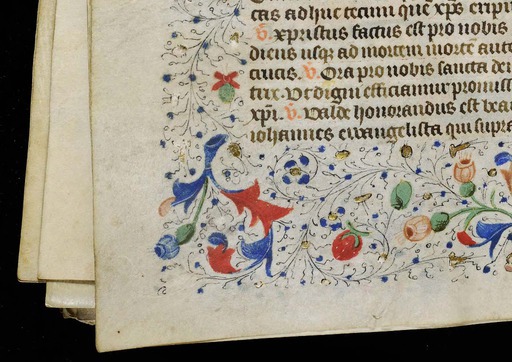 cas ad huc tecum que xp̄s eripu
v̄. xpristus factus est pro nobis
diens usqꝫ ad mortem morte aute
crucis. v̄. Ora pro nobis sancta dei
trix. Vt digni efficiamur promiss
xp̄i. v̄. Valde honorandus est bea
iohannes ewangelista qui supra